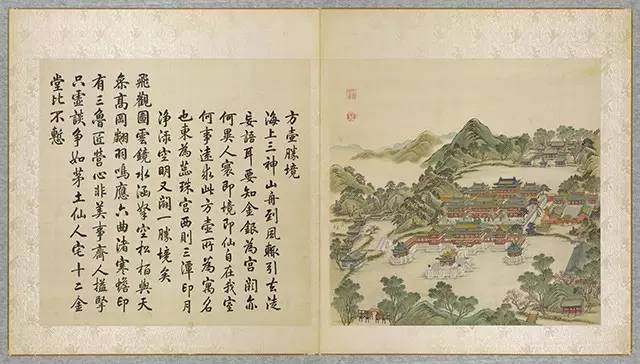 方壺勝境
海上三神山舟到風輙引去徒
妄語耳要知金銀為宮闕亦
何異人寰即境即仙自在我室
何事遠求此方壺所為寓名
也東為蕊珠宮西則三潭印月
淨渌空明又闢一勝境矣
飛觀圖雲鏡水涵拏空松栢與天
叅高岡翽羽鳴應六曲渚寒蟾印
有三魯匠營心非美事齊人搤掔
只虛談爭如茅土仙人宅十二金
堂比不慙